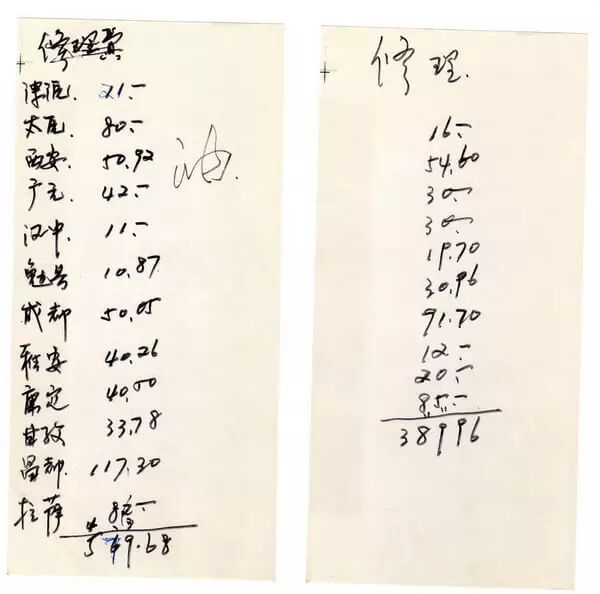 修理费
21.-
太原. 80.-
西安. 50.92
油.
广元. 42.-
汉中. 11.-
勉县 10.87
成都 50.05
雅安 40.26
康定 40.50
甘孜 33.78
昌都. 117.30
拉萨 82.-
579.68
修理.
16.-
54.60
30.-
30.-
19.70
30.96
91.70
12.-
20.-
85.-
38996